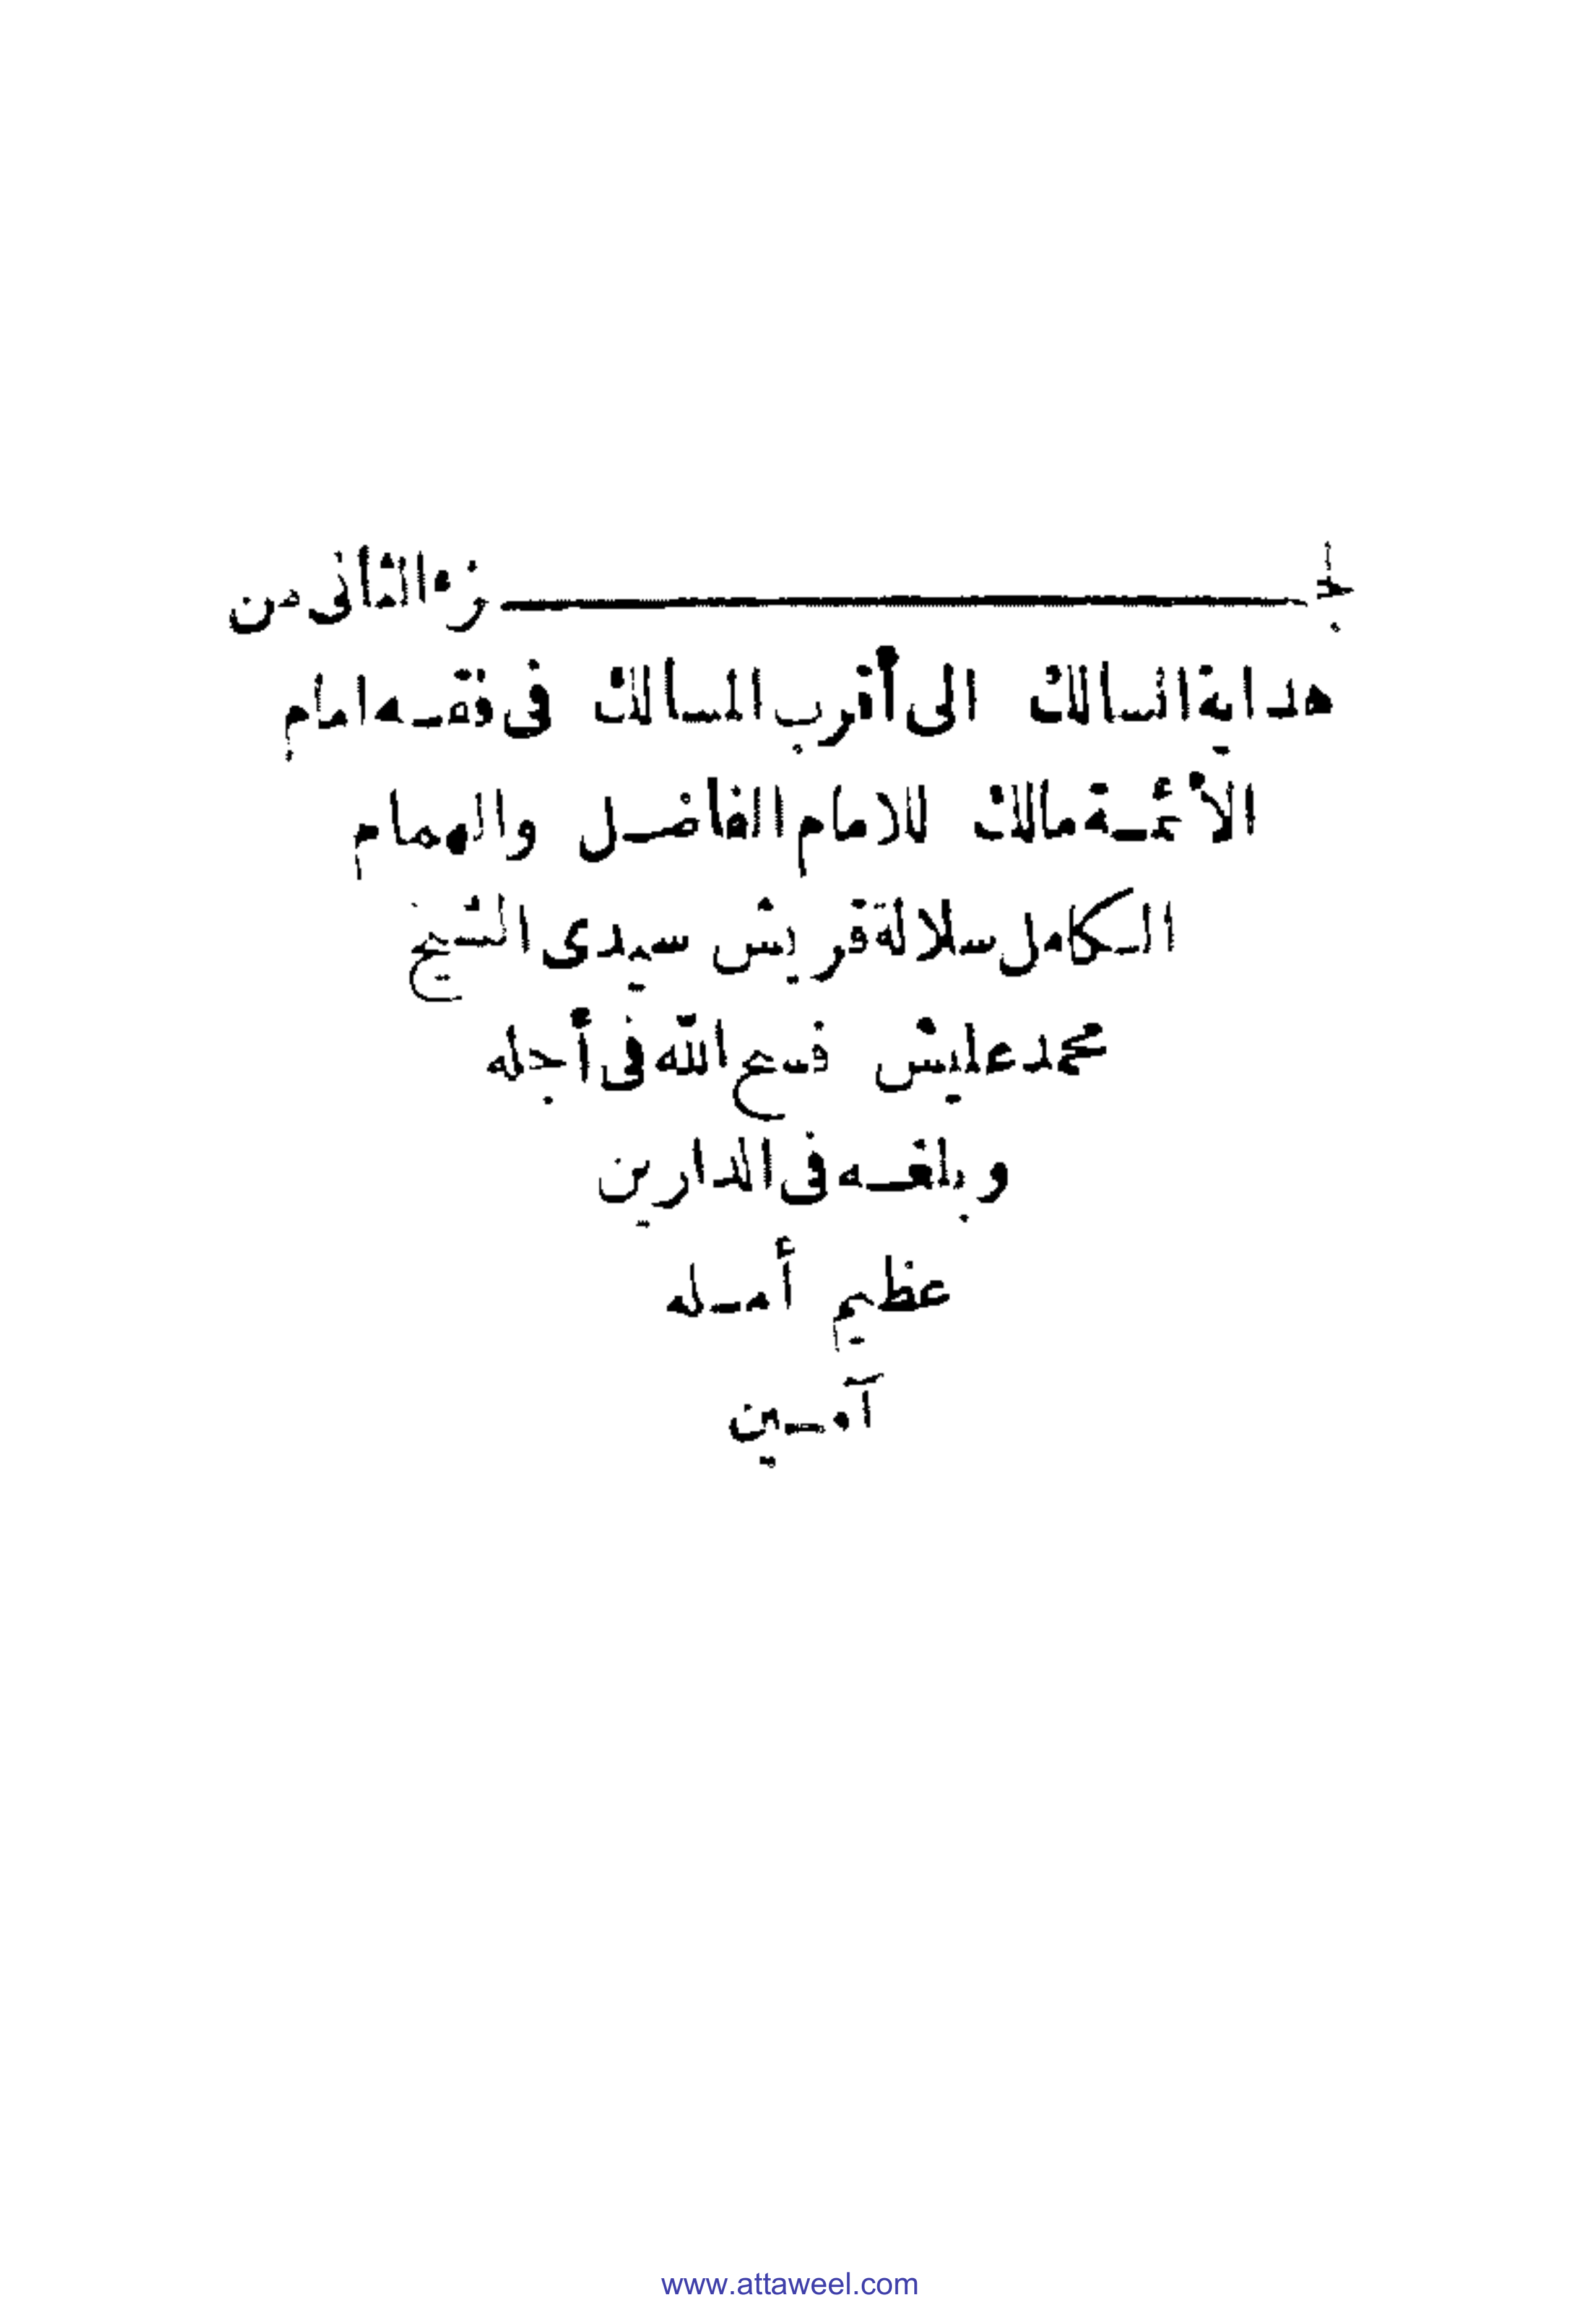 الجزء الثانى من
هداية السالك الى أقرب المسالك فى فقه امام
الأئمة مالك للامام الفاضل والهمام
الكامل سلالة قريش سيدى الشيخ
محمد عليش فسح الله فى أجله
وبلغه فى الدارين
عظيم أمله
آمين
www.attaweel.com